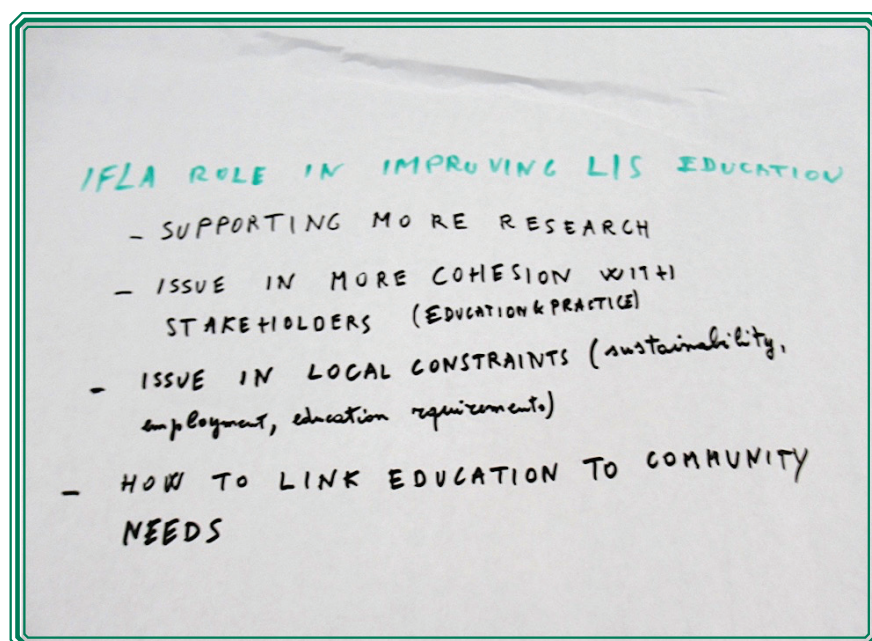 IFLA ROLE IN IMPROVING LIS EDUCATION
- SUPPORTING MORE RESEARCH
- ISSUE IN MORE COHESION WITH
STAKEHOLDERS (EDUCATION & PRACTICE)
- ISSUE IN LOCAL CONSTRAINTS (sustainability,
employment, education requirements)
- HOW TO LINK EDUCATION TO COMMUNITY
NEEDS